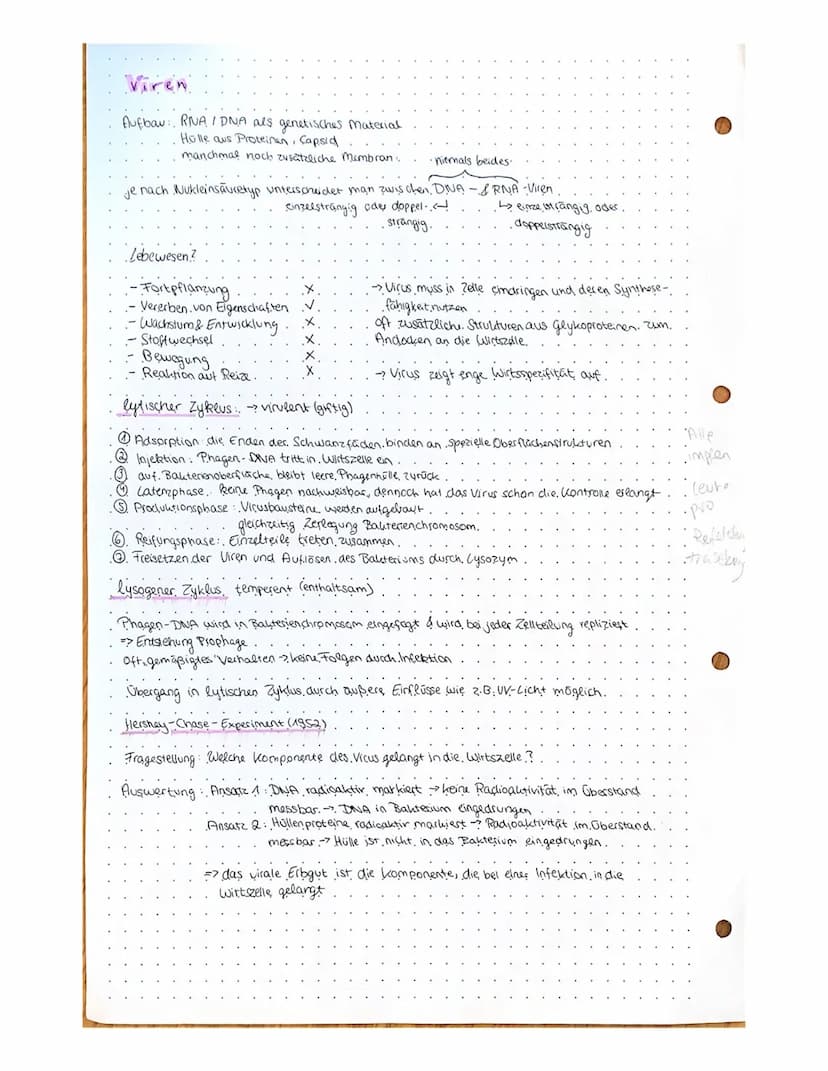 Viren
Aufbau: RNA / DNA als genetisches Material
Hülle aus Proteinen, Capsid
manchmal noch zusätzliche Membran
niemals beides
je nach Nukleinsäuretyp unterscheidet man zwischen DNA - & RNA - Viren
einzelsträngig oder doppel- ↵ ↳ einzelsträngig oder
strängig doppelsträngig
Lebewesen?
- Fortpflanzung x → Virus muss in Zelle eindringen und deren Synthese-
- Vererben von Eigenschaften ✓ fähigkeit nutzen
- Wachstum & Entwicklung x oft zusätzliche Strukturen aus Glykoproteinen zum
- Stoffwechsel x Andocken an die Wirtszelle
- Bewegung x
- Reaktion auf Reize x → Virus zeigt enge Wirtsspezifität auf
lytischer Zyklus: → virulent (giftig)
① Adsorption: die Enden der Schwanzfäden binden an spezielle Oberflächenstrukturen
② Injektion: Phagen-DNA tritt in Wirtszelle ein
③ auf Bakterienoberfläche bleibt leere Phagenhülle zurück
④ Latenzphase: keine Phagen nachweisbar, dennoch hat das Virus schon die Kontrolle erlangt
⑤ Produktionsphase: Virusbausteine werden aufgebaut
gleichzeitig Zerlegung Bakterienchromosom
⑥ Reifungsphase: Einzelteile treten zusammen
⑦ Freisetzen der Viren und Auflösen des Bakteriums durch Lysozym
Alle
impfen
Leute
pro
lysogener Zyklus temperent (enthaltsam)
Phagen-DNA wird in Bakterienchromosom eingefügt & wird bei jeder Zellteilung repliziert
=> Entstehung Prophage
oft „gemäßigtes" Verhalten → keine Folgen durch Infektion
Übergang in lytischen Zyklus durch äußere Einflüsse wie z.B. UV-Licht möglich
Hershey-Chase-Experiment (1952)
Fragestellung: Welche Komponente des Virus gelangt in die Wirtszelle?
Auswertung: Ansatz 1: DNA radioaktiv markiert → keine Radioaktivität im Überstand
messbar → DNA in Bakterium eingedrungen
Ansatz 2: Hüllenproteine radioaktiv markiert → Radioaktivität im Überstand
messbar → Hülle ist nicht in das Bakterium eingedrungen
=> das virale Erbgut ist die Komponente, die bei einer Infektion in die
Wirtszelle gelangt